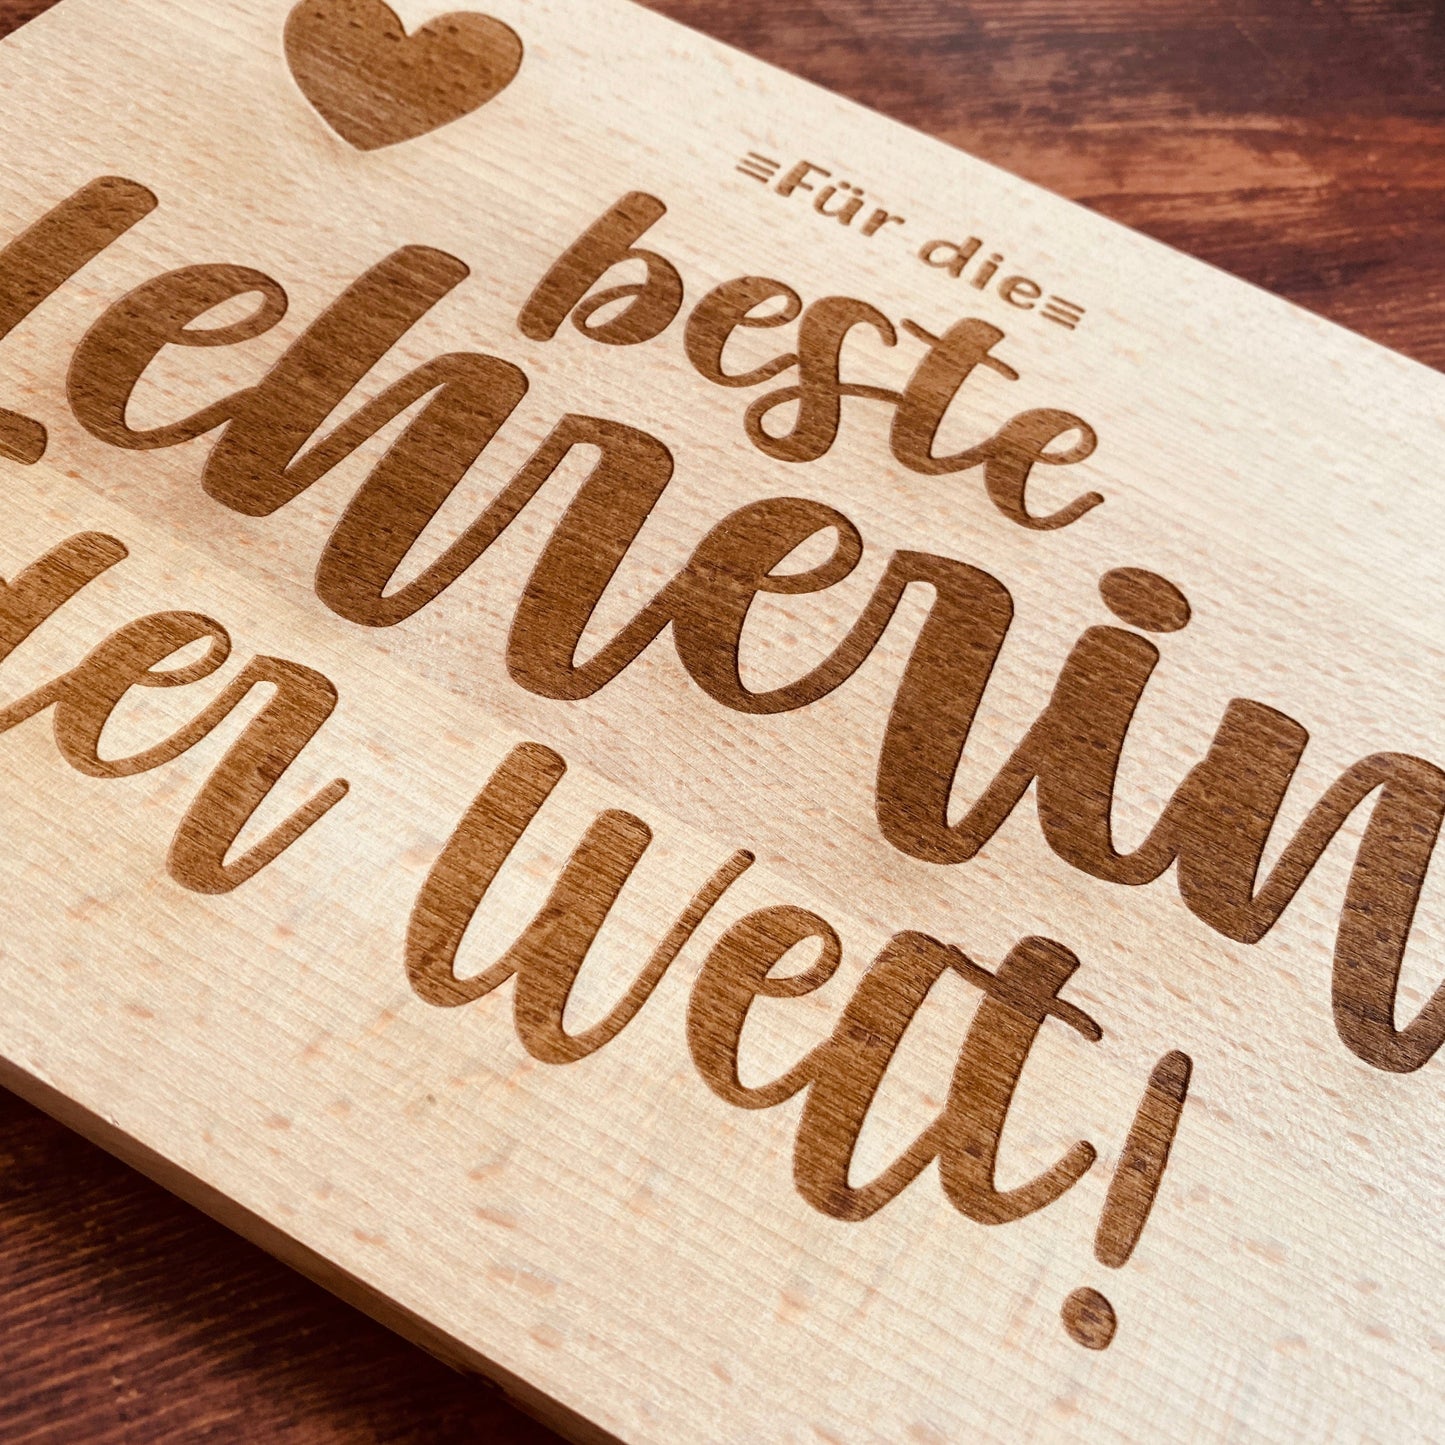 Für die
beste
Lehrerin
der Welt!